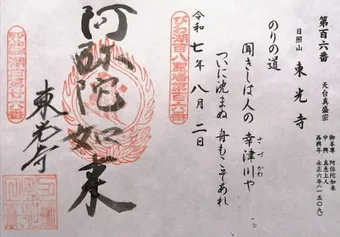 第百六番
天台真盛宗
日照山 東光寺
御本尊 阿弥陀如来
中興 真恵上人
再興年 永正六年(一五〇九)
のりの道
聞きしは人の 幸津川や
さづかわ
ついに沈まぬ 舟もこそあれ
令和七年八月二日
びわ湖百八霊場第百六番
阿弥陀如来
東光寺